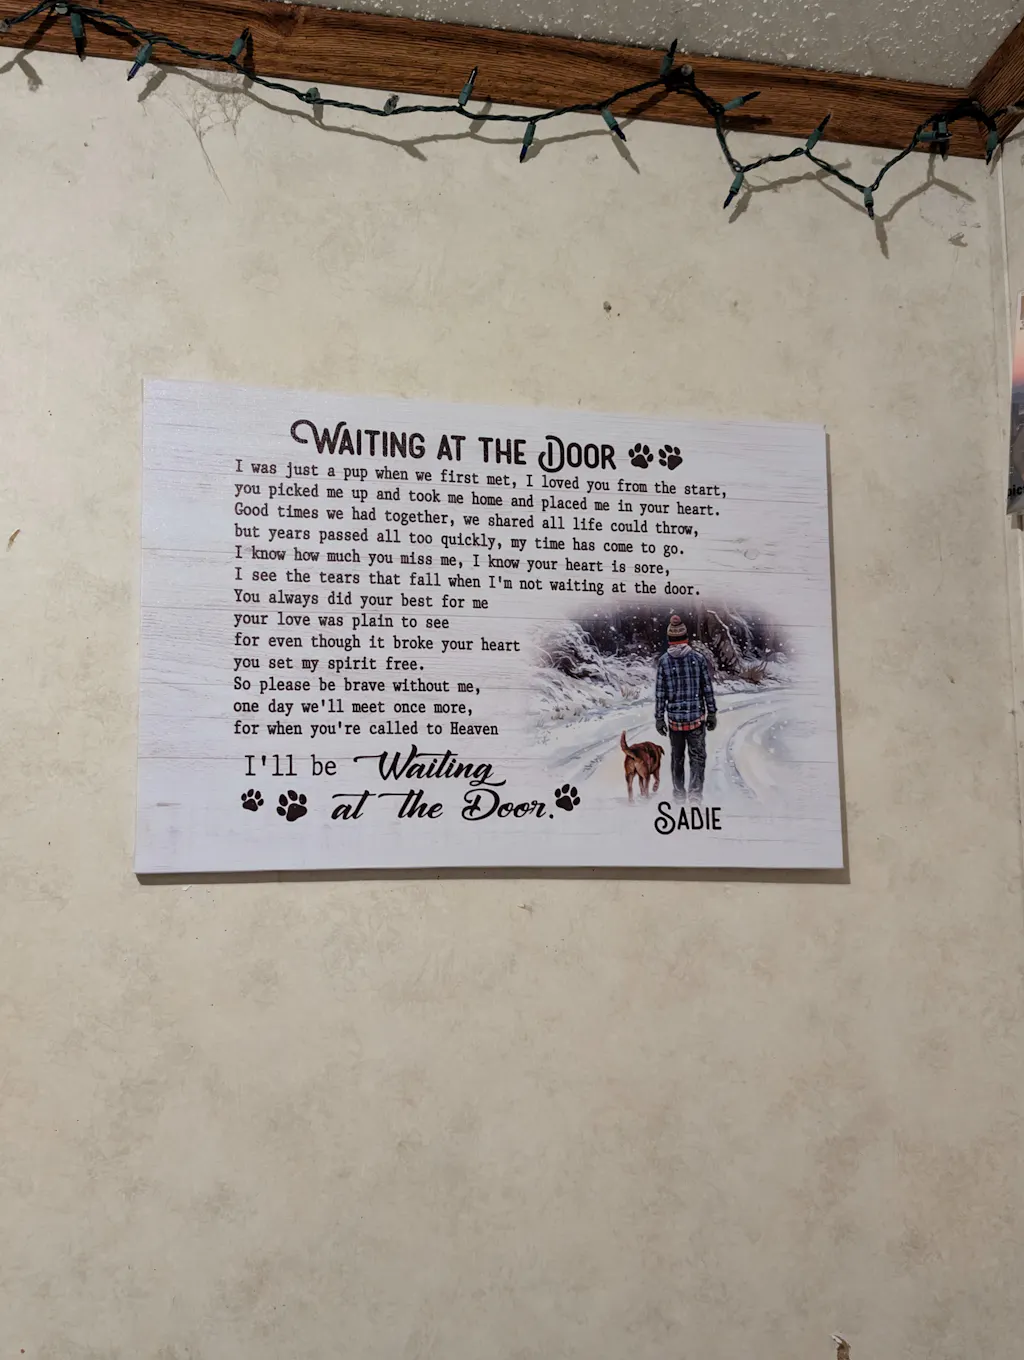 WAITING AT THE DOOR
I was just a pup when we first met, I loved you from the start,
you picked me up and took me home and placed me in your heart.
Good times we had together, we shared all life could throw,
but years passed all too quickly, my time has come to go.
I know how much you miss me, I know your heart is sore,
I see the tears that fall when I'm not waiting at the door.
You always did your best for me
your love was plain to see
for even though it broke your heart
you set my spirit free.
So please be brave without me,
one day we'll meet once more,
for when you're called to Heaven
I'll be Waiting
at the Door.
SADIE